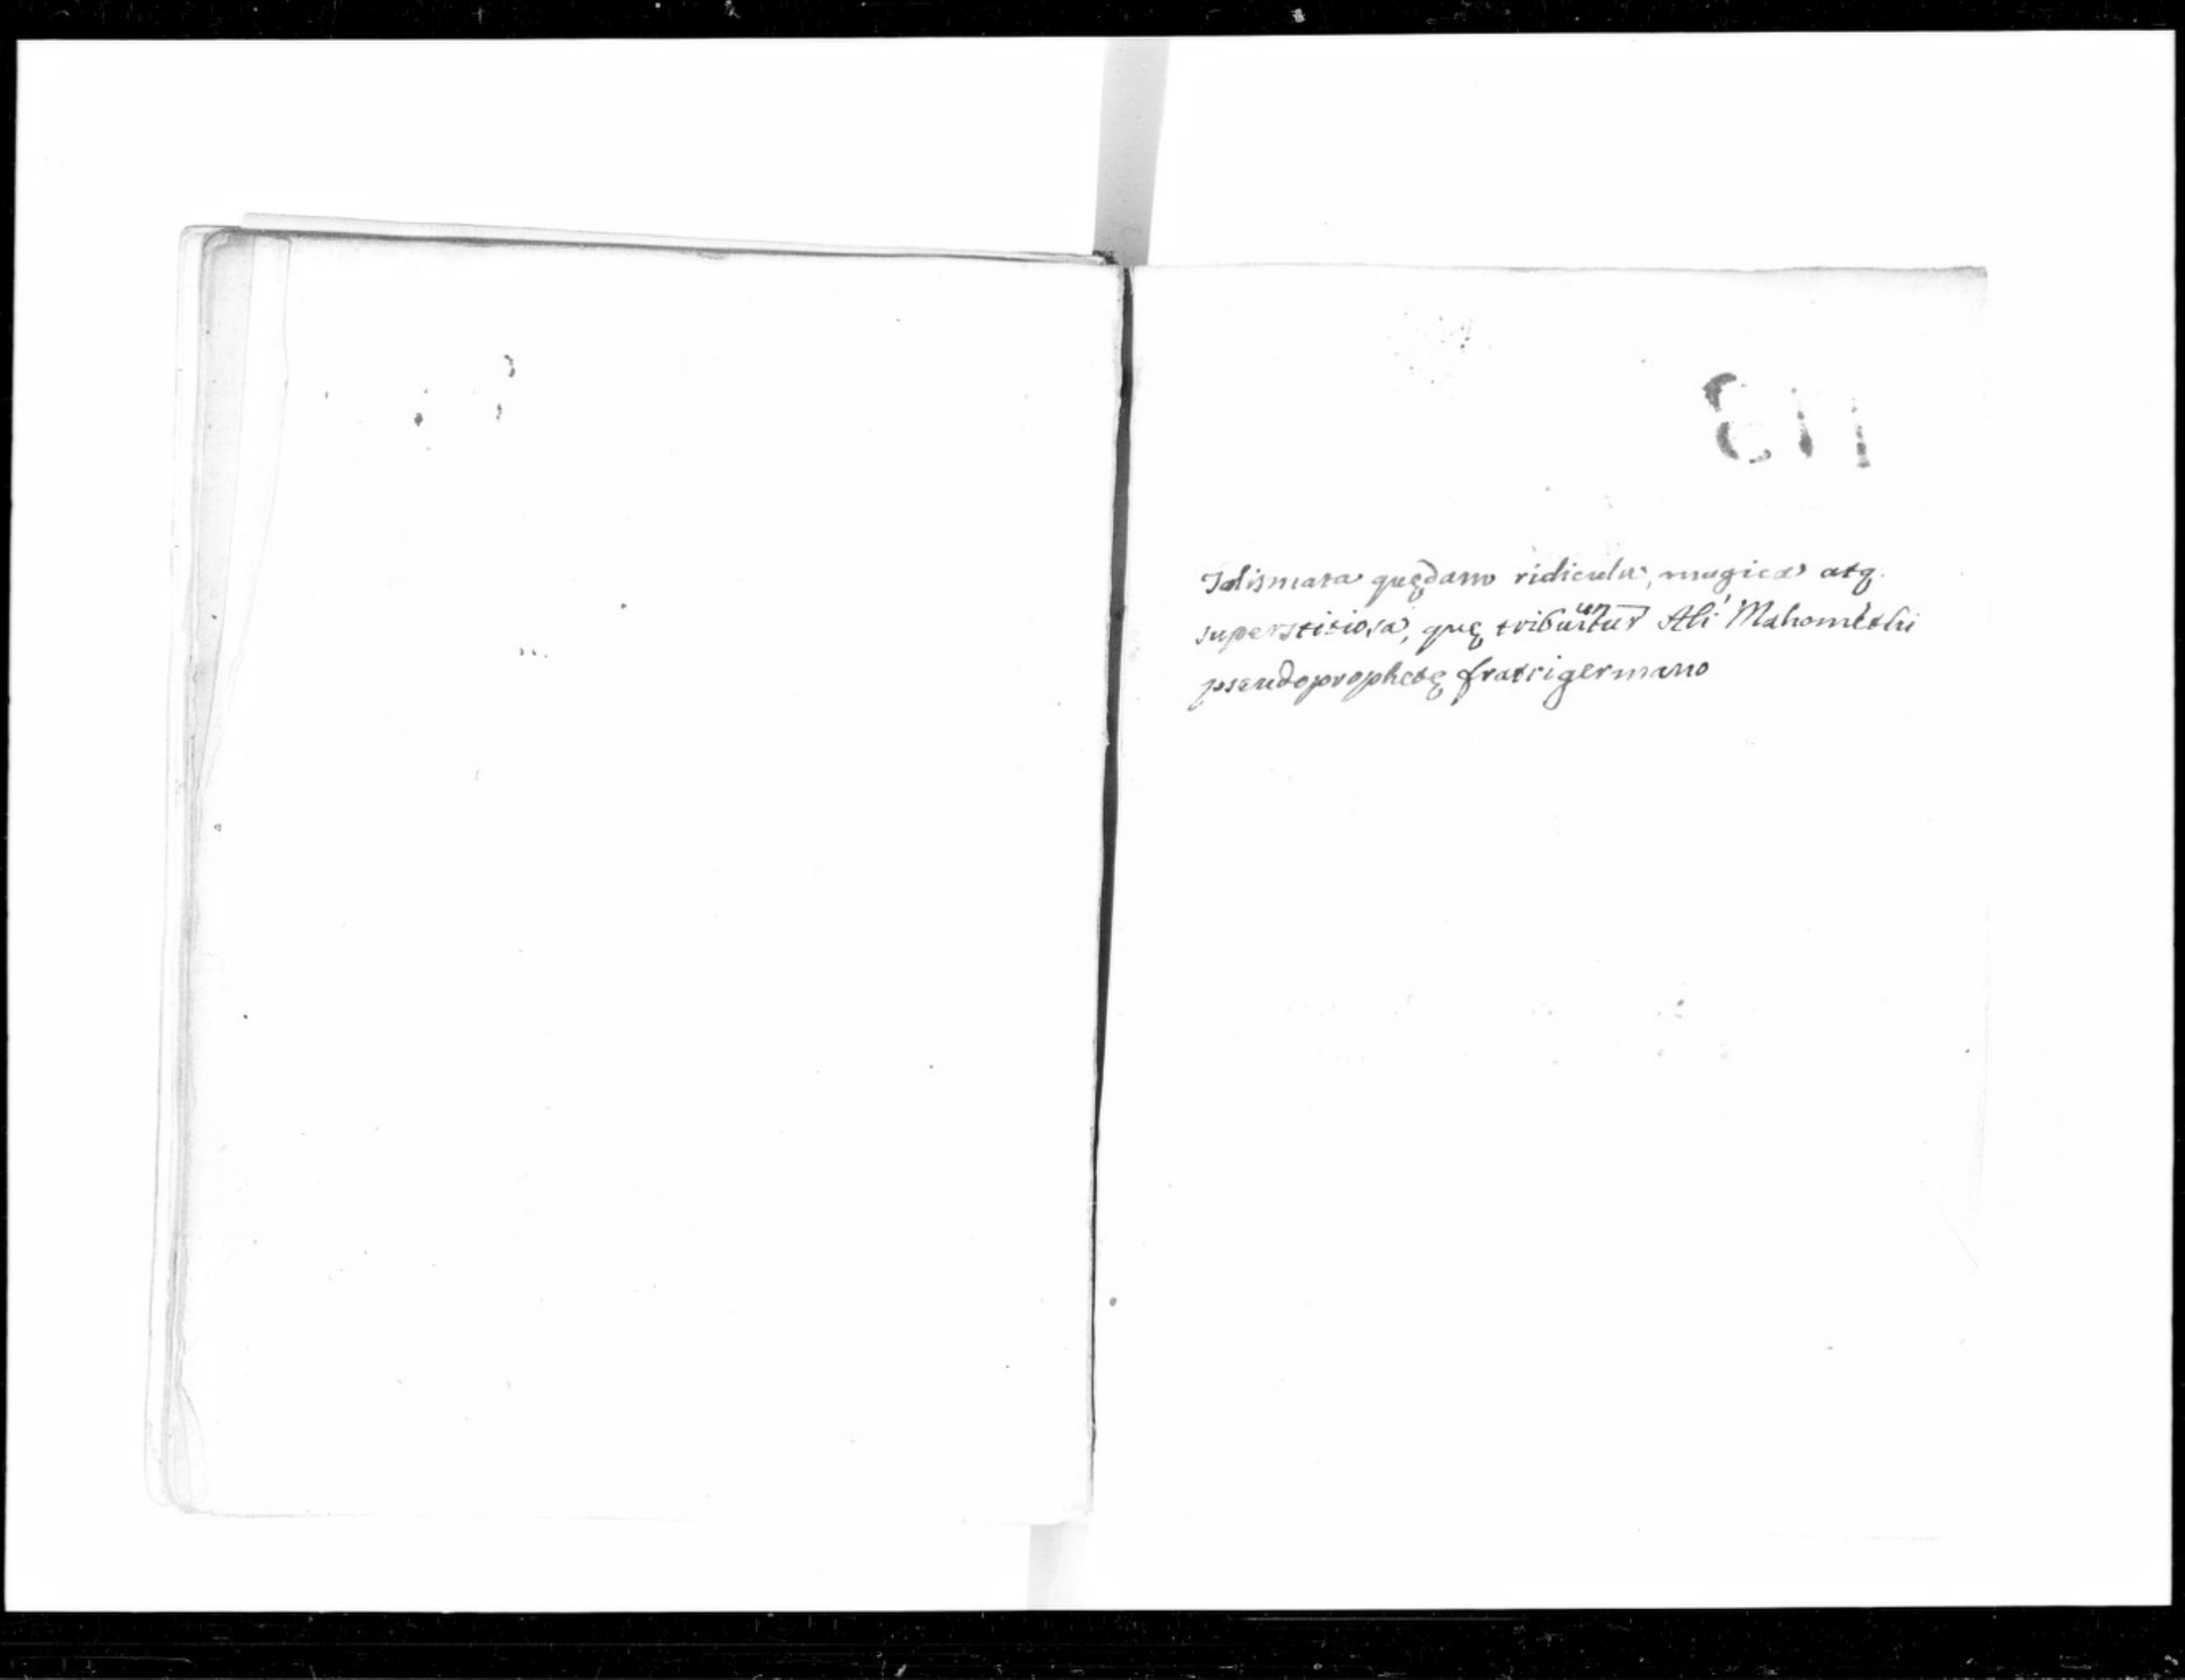 Talismata quędam ridicula, magica atq.
superstitiosa, quę tribuuntur Ali Mahomethi
pseudoprophetę fratri germano